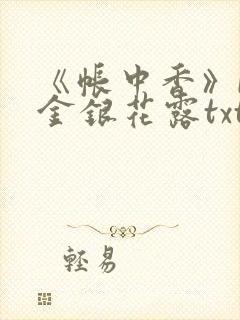 《帐中香》
金银花露txt
轻易